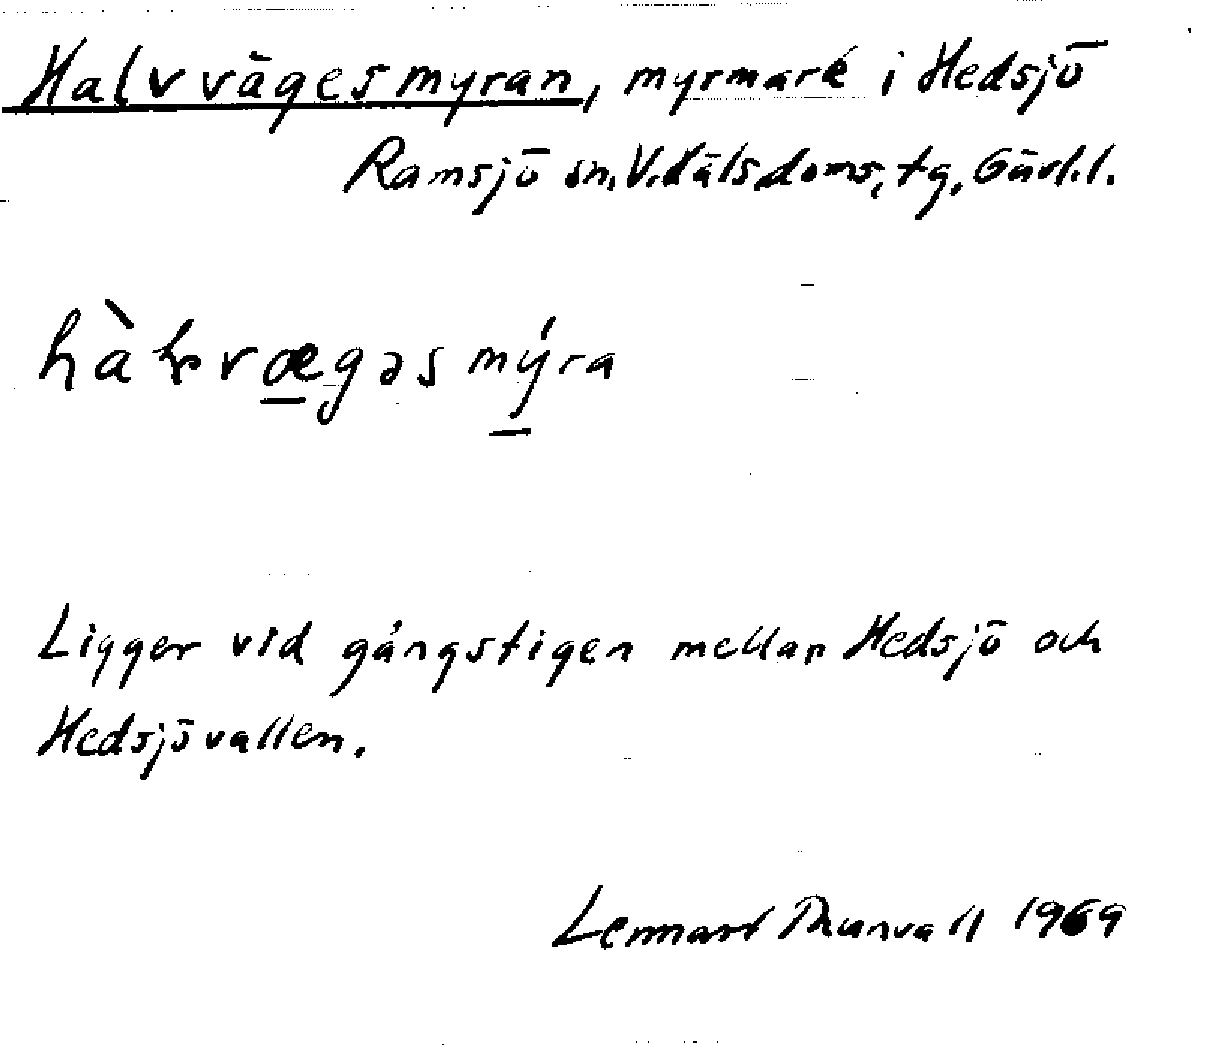 Halvvägesmyran, myrmark i Hedsjö
Ramsjö sn, V. Häls. doms. tg. Gävl.l.
hàlvvægəsmýra
Ligger vid gångstigen mellan Hedsjö och
Hedsjövallen.
Lennart Thunvall 1969